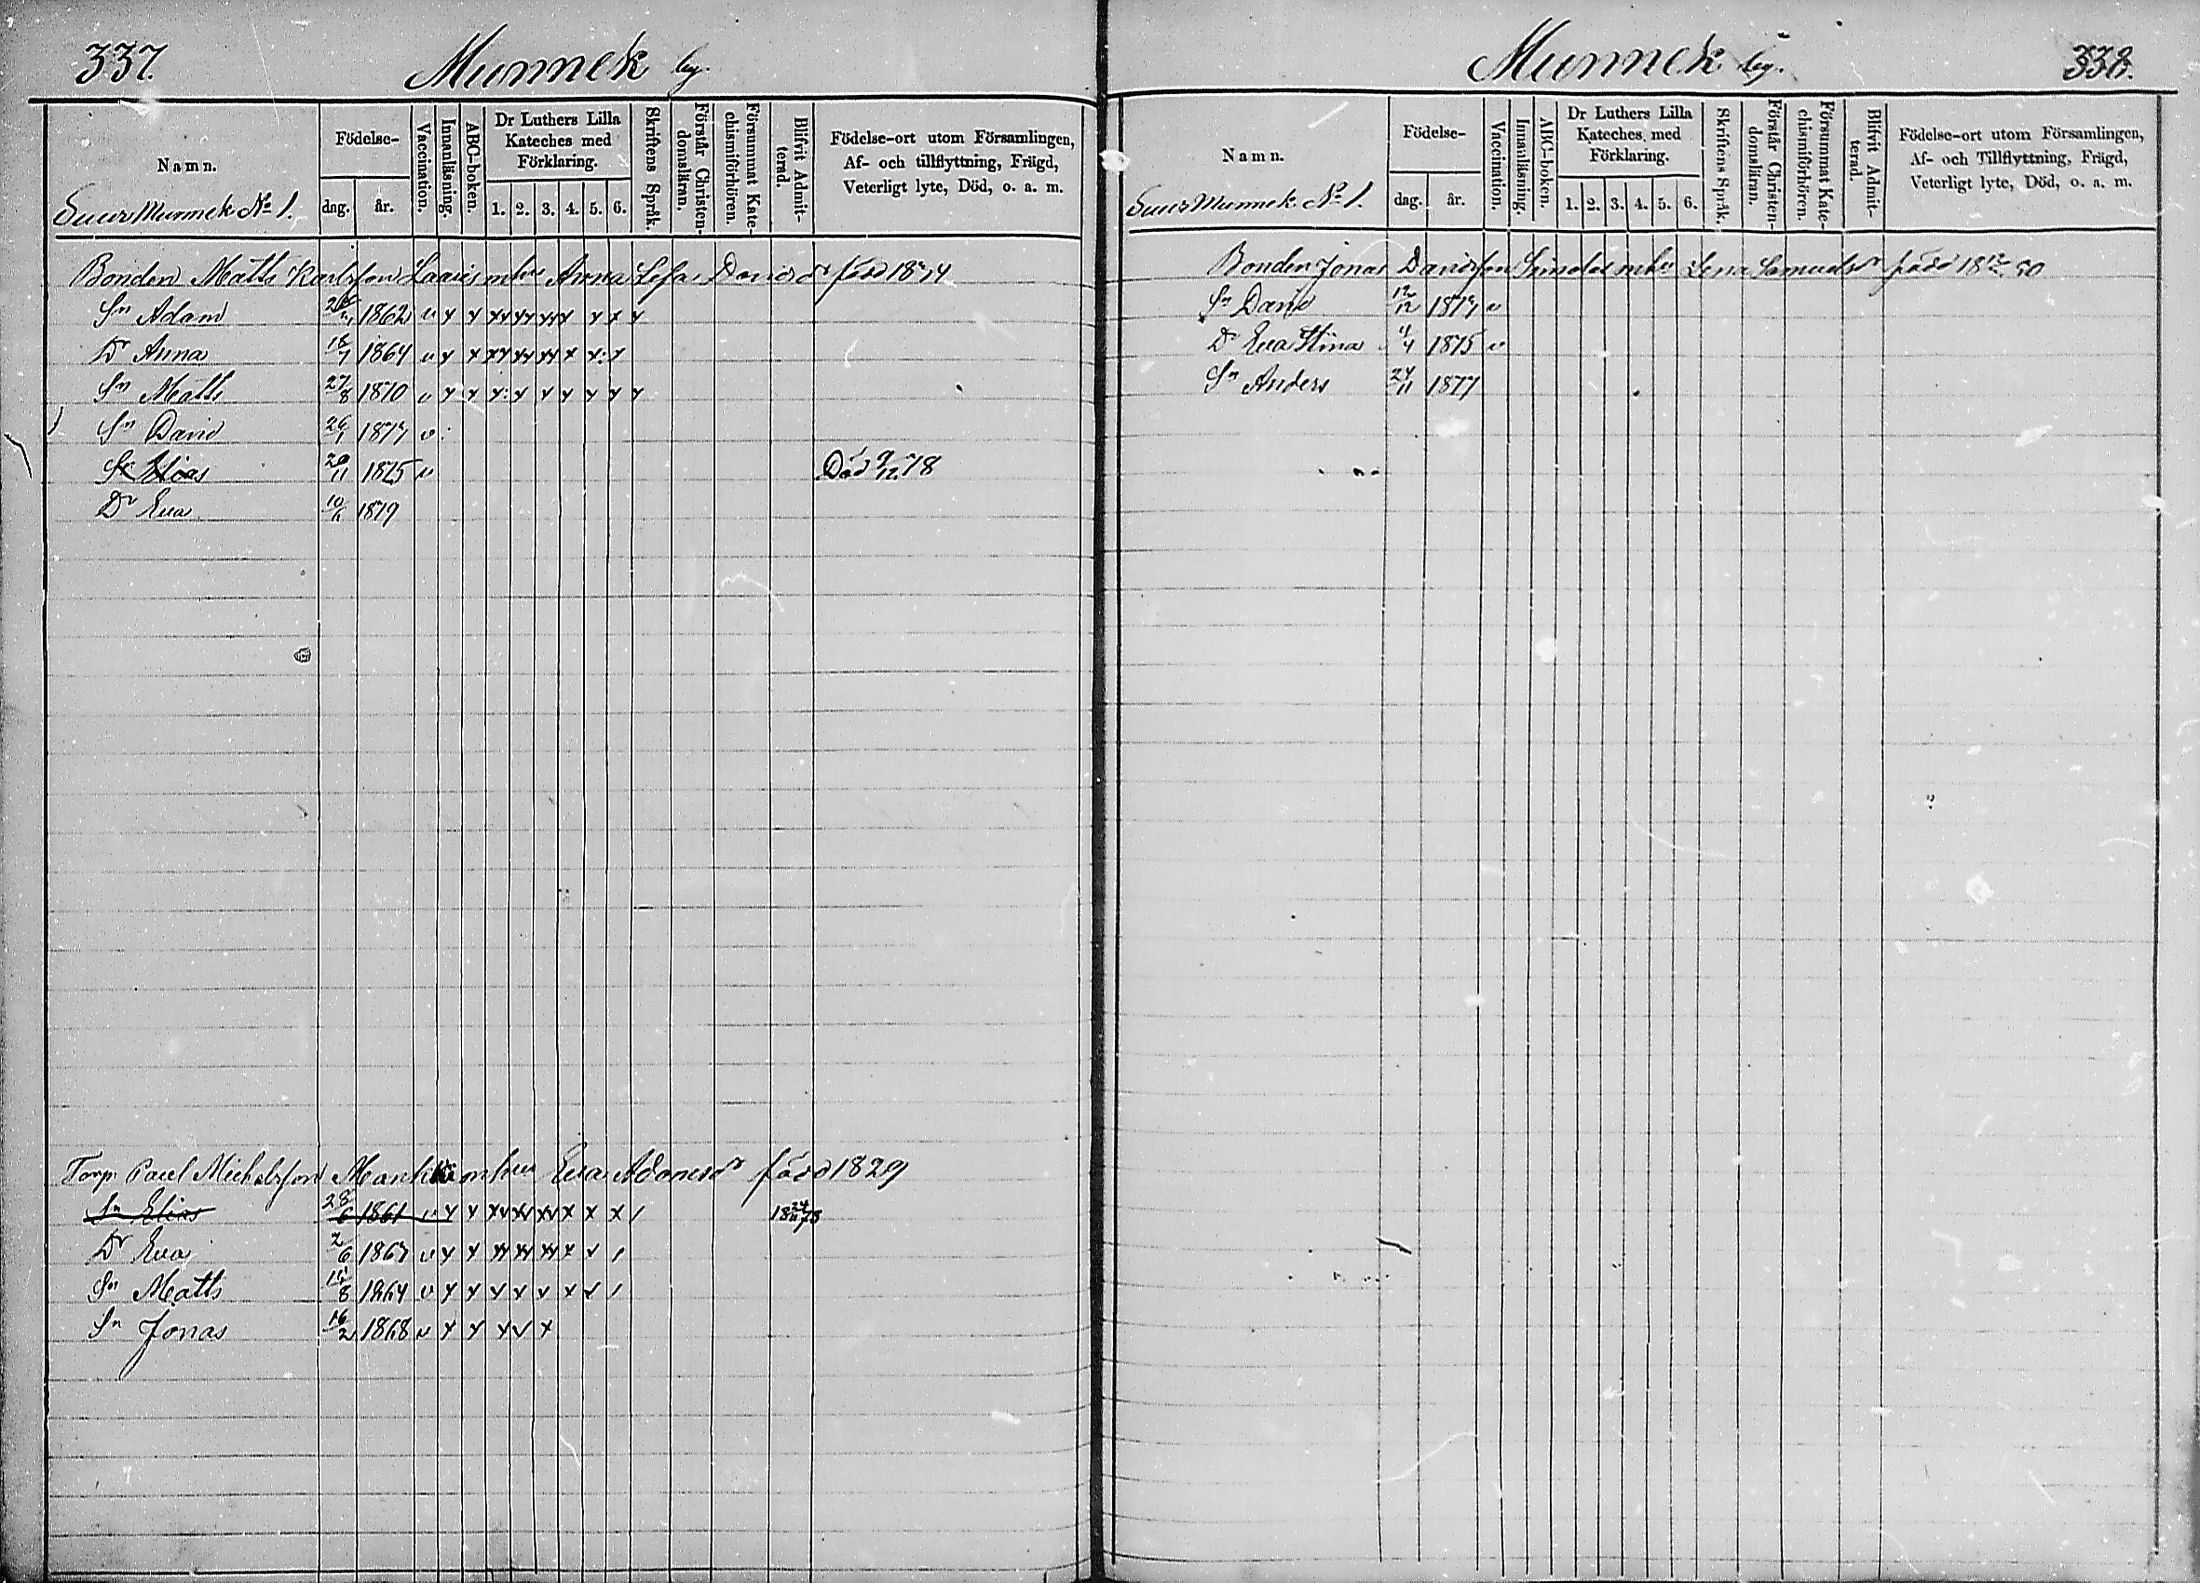 337.
Munnek by.
Namn.
Födelse-
dag. år.
Vaccination.
Innanläsning.
ABC-boken.
Dr Luthers Lilla
Kateches med
Förklaring.
1. 2. 3. 4. 5. 6.
Skriftens Språk.
Förstår Christen-
domsläran.
Försummat Kate-
chismiförhören.
Blifvit Admit-
terad.
Födelse-ort utom Församlingen,
Af- och tillflyttning, Frägd,
Veterligt lyte, Död, o. a. m.
Suur Munnek No 1.
Bonden Matts Karlsson Laaris m hu Anna Lefa Davidsdr född 18
Sn Adam 1862 v
Dr Anna 18/7 1864 v
Sn Matts 27/8 1870 v
Sn David 26/1 v
Sn Elias 20/11 1875 v Död 9/12 78
Dr Eva 10/6 1879
Torp. Paul Michelsson m hu Eva Adamsdr född 1829
Sn Elias 28/6 1861 v 18 24/11 78
Dr Eva 2/6 v
Sn Matts 1864 v
Sn Jonas 16/2 1868 v
Munnek by.
338.
Namn.
Födelse-
dag. år.
Vaccination.
Innanläsning.
ABC-boken.
Dr Luthers Lilla
Kateches med
Förklaring.
1. 2. 3. 4. 5. 6.
Skriftens Språk.
Förstår Christen-
domsläran.
Försummat Kate-
chismiförhören.
Blifvit Admit-
terad.
Födelse-ort utom Församlingen,
Af- och Tillflyttning, Frägd,
Veterligt lyte, Död, o. a. m.
Suur Munnek No 1.
Bonden Jonas Davidsson m hu Lena Samuelsdr född 18 50
Sn David 12/12 v
Dr Eva Stina 4/4 1875 v
Sn Anders 24/11 1877